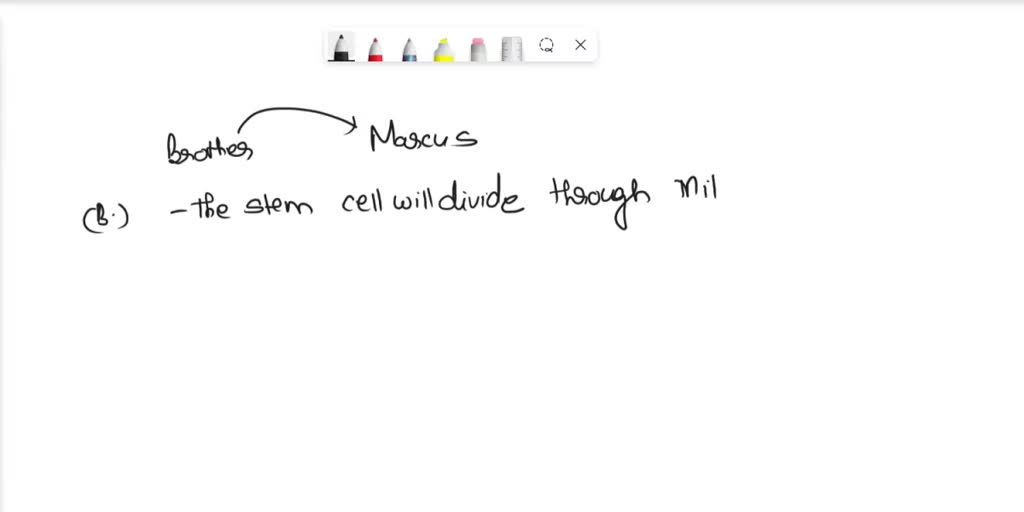 Brother → Marcus
(B.) - the stem cell will divide through Mil